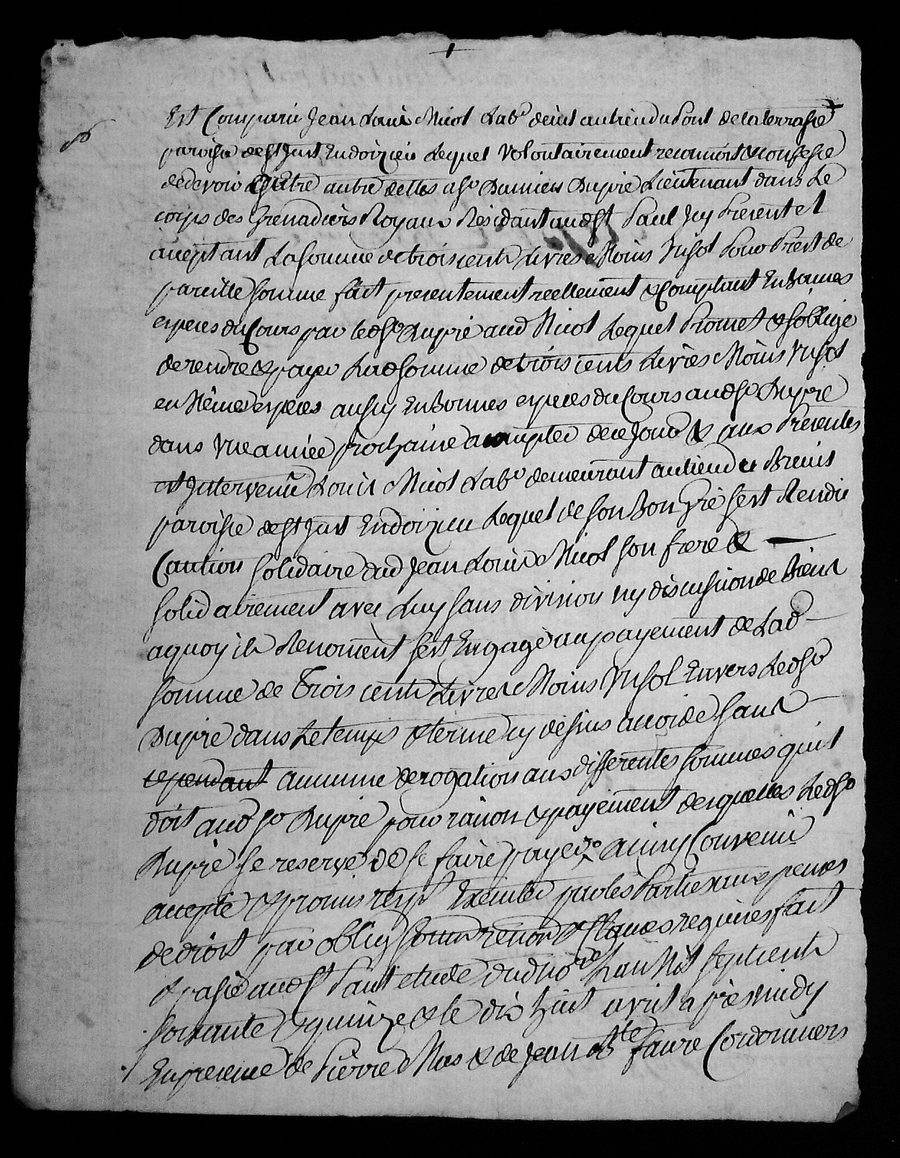 Est Comparu Jean Louis Nicol Labr du lieu du Pont de la terrasse
paroisse de St Just En doizieu Lequel Volontairement reconnoit & confesse
de devoir autre dettes a Sr Damien Dupré Lieutenant dans Le
corps des Grenadiers Royaux Residant aud St Paul Icy Present et
aceptant La somme de trois cents Livres Moins Un sol Pour Prest de
pareille somme fait presentement reellement & Comptant En bonnes
especes du Cours par led Sr Dupré aud Nicol Lequel Promet & soblige
de rendre & payer Lad somme de trois cents Livres Moins Un sol
en Meme especes aussy En bonnes especes du Cours aud Sr Dupré
dans Une année prochaine a compter de ce Jour & aux Presentes
est Intervenu Louis Nicol Labr demeurant au lieu de
paroisse de St Just En doizieu Lequel de son Bon Gré sest Rendu
Caution solidaire dud Jean Louis Nicol son frere &
solidairement avec Luy sans division ny discussion de Biens
a quoy il Renoncent sest Engagé au payement de Lad
somme de Trois cents Livres Moins Un sol Envers Led Sr
Dupré dans Le temps & terme cy dessus accordé sans
cependant aucunne derogation aux differentes sommes quil
doit aud Sr Dupré pour raison & payement desquelles Led Sr
Dupré se reserve de se faire payer ainsy Convenu
accepté & promis Executer par les Parties aux peines
de droit par oblig soum renon & Clauses requises fait
& passé aud St Paul etude du dnore Lan Mil sept cents
soixante & quinze & le dix huit avril a pres midy
En presence de Pierre Mas & de Jean Bte faure Cordonniers